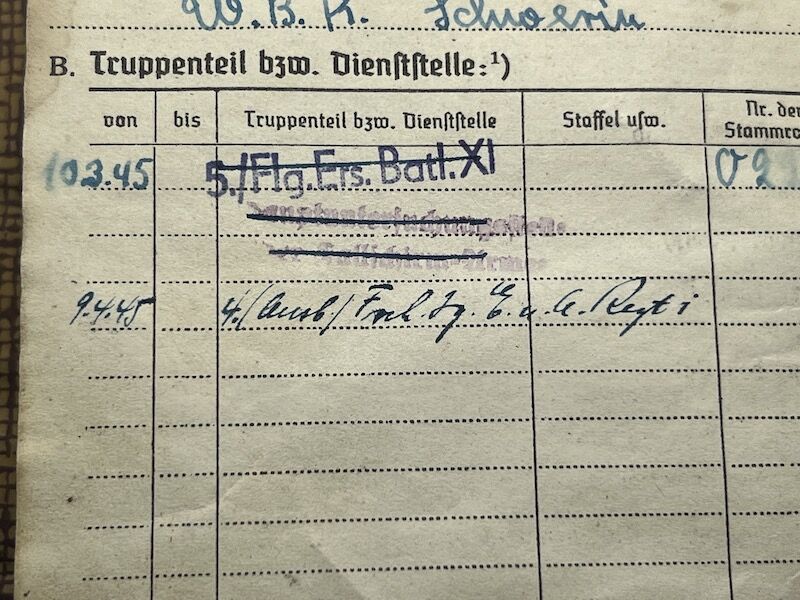 W.B.K. Schwerin
B. Truppenteil bzw. Dienststelle:¹)
von bis Truppenteil bzw. Dienststelle Staffel usw. Nr. der Stammro
10.3.45 5./Flg.Ers.Batl.XI 02
Hauptuntersuchungsstelle
der Fallschirm-Armee
9.4.45 4. (Ausb.) Fsch. Jg. E. u. A. Regt 1